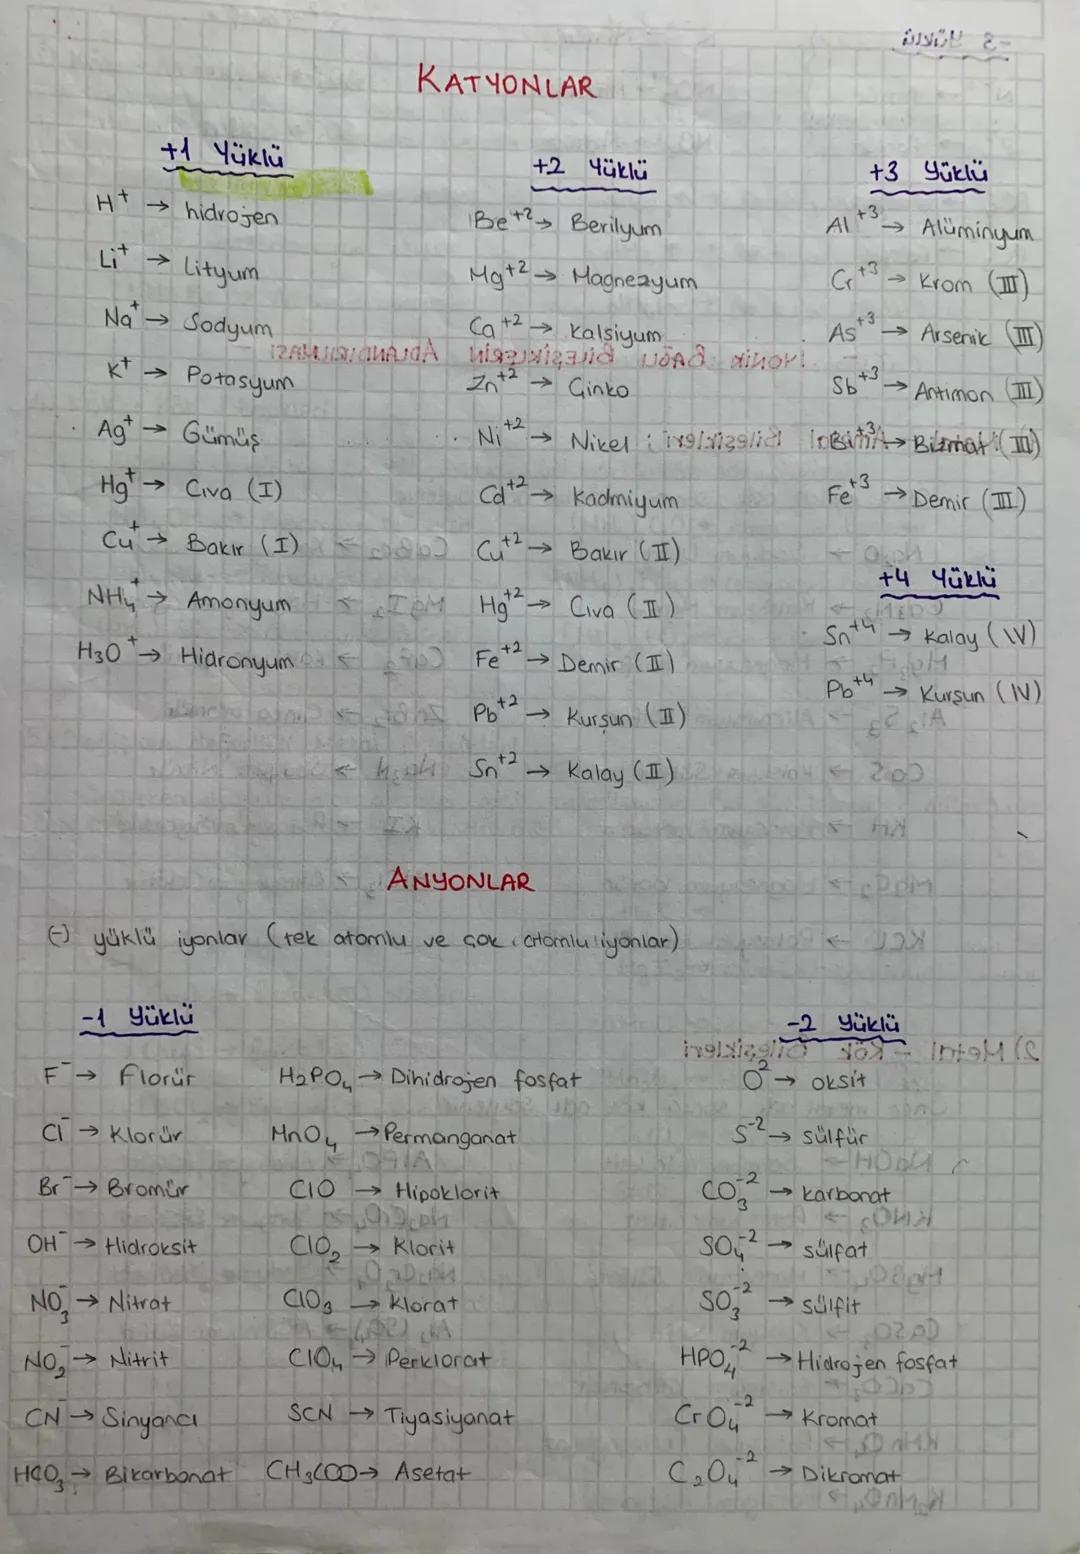 KATYONLAR
+1 Yüklü
H⁺ → hidrojen
Li⁺ → Lityum
Na⁺ → Sodyum
K⁺ → Potasyum
Ag⁺ → Gümüş
Hg⁺ → Cıva (I)
Cu⁺ → Bakır (I)
NH₄⁺ → Amonyum
H₃O⁺ → Hidronyum
+2 Yüklü
Be⁺² → Berilyum
Mg⁺² → Magnezyum
Ca⁺² → Kalsiyum
Zn⁺² → Çinko
Ni⁺² → Nikel
Cd⁺² → Kadmiyum
Cu⁺² → Bakır (II)
Hg⁺² → Cıva (II)
Fe⁺² → Demir (II)
Pb⁺² → Kurşun (II)
Sn⁺² → Kalay (II)
+3 Yüklü
Al⁺³ → Alüminyum
Cr⁺³ → Krom (III)
As⁺³ → Arsenik (III)
Sb⁺³ → Antimon (III)
Bi⁺³ → Bizmat (III)
Fe⁺³ → Demir (III)
+4 Yüklü
Sn⁺⁴ → Kalay (IV)
Pb⁺⁴ → Kurşun (IV)
ANYONLAR
(-) yüklü iyonlar (tek atomlu ve çok atomlu iyonlar)
-1 Yüklü
F⁻ → Florür
Cl⁻ → Klorür
Br⁻ → Bromür
OH⁻ → Hidroksit
NO₃⁻ → Nitrat
NO₂⁻ → Nitrit
CN⁻ → Sinyancı
HCO₃⁻ → Bikarbonat
H₂PO₄ → Dihidrojen fosfat
MnO₄ → Permanganat
ClO → Hipoklorit
ClO₂ → Klorit
ClO₃ → Klorat
ClO₄ → Perklorat
SCN → Tiyasiyanat
CH₃COO → Asetat
-2 Yüklü
O⁻² → oksit
S⁻² → sülfür
CO₃⁻² → karbonat
SO₄⁻² → sülfat
SO₃⁻² → sülfit
HPO₄⁻² → Hidrojen fosfat
CrO₄⁻² → Kromat
C₂O₄⁻² → Dikromat